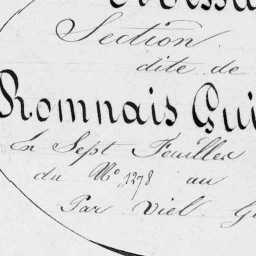 Section
dite de
Romnais Gui
En Sept Feuilles
du N° 1278 au
Par Viel G